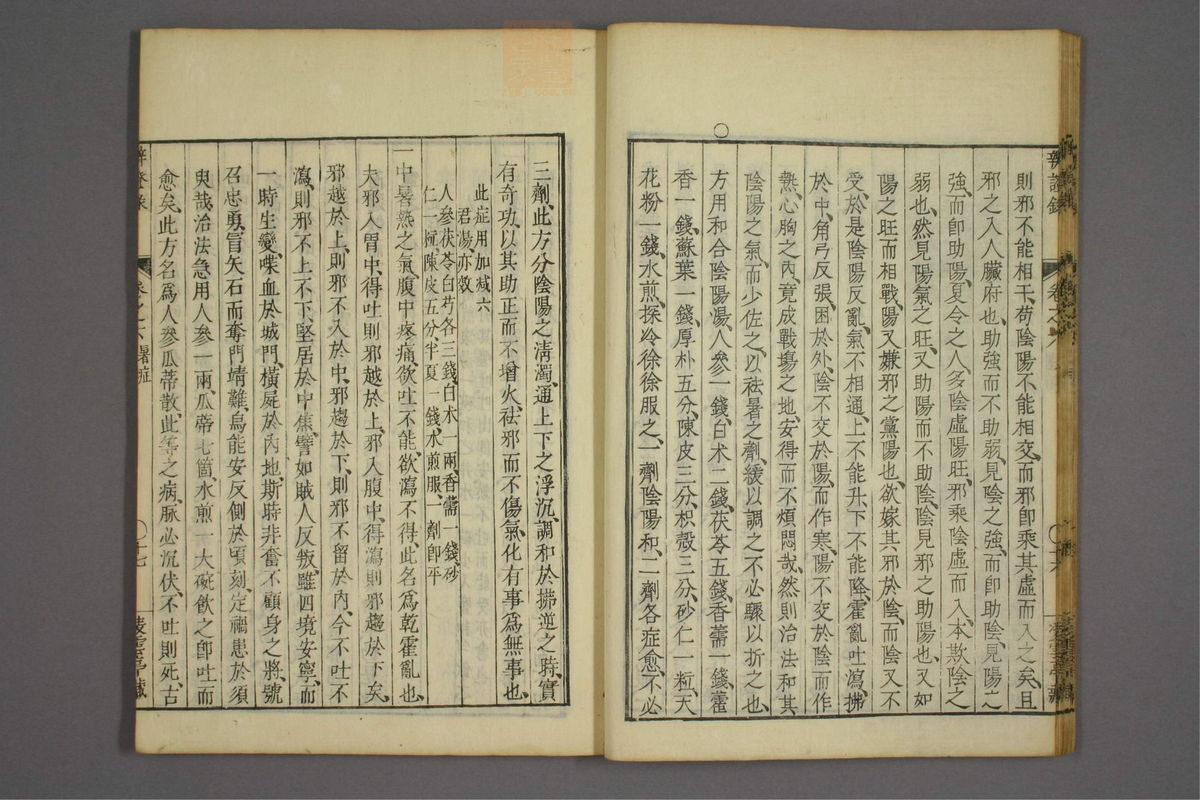 辨證錄 卷之六
則邪不能相干、苟陰陽不能相交、而邪卽乘其虛而入之矣、且
邪之入人臟府也、助強而不助弱、見陰之強、而卽助陰、見陽之
強、而卽助陽、夏令之人、多陰虛陽旺、邪乘陰虛而入、本欺陰之
弱也、然見陽氣之旺、又助陽而不助陰、陰見邪之助陽也、又如
陽之旺而相戰、陽又嫌邪之黨陽也、欲嫁其邪於陰、而陰又不
受、於是陰陽反亂、氣不相通、上不能升、下不能降、霍亂吐瀉、拂
於中、角弓反張、困於外、陰不交於陽、而作寒、陽不交於陰、而作
熱、心胸之內、竟成戰場之地、安得而不煩悶哉、然則治法和其
陰陽之氣、而少佐之、以祛暑之劑、緩以調之、不必驟以折之也、
○方用和合陰陽湯、人參一錢、白术二錢、茯苓五錢、香薷一錢、藿
香一錢、蘇葉一錢、厚朴五分、陳皮三分、枳殼三分、砂仁一粒、天
花粉一錢、水煎、探冷徐徐服之、一劑陰陽和、二劑各症愈、不必
三劑、此方分陰陽之淸濁、通上下之浮沉、調和於拂逆之時、實
有奇功、以其助正而不增火、祛邪而不傷氣、化有事爲無事也、
此症用加減六
君湯亦效
人參茯苓白芍各三錢、白术一兩、香薷一錢、砂
仁一粒、陳皮五分、半夏一錢、水煎服、一劑卽平
一中暑熱之氣、腹中疼痛、欲吐不能、欲瀉不得、此名爲乾霍亂也、
夫邪入胃中、得吐則邪越於上、邪入腹中、得瀉則邪趨於下矣、
邪越於上、則邪不入於中、邪趨於下、則邪不留於內、今不吐不
瀉、則邪不上不下、堅居於中焦、譬如賊人反叛、雖四境安寧、而
一時生變、喋血於城門、橫屍於內地、斯時非奮不顧身之將、號
召忠勇、冒矢石而奪門靖難、烏能安反側於頃刻、定禍患於須
臾哉、治法急用人參一兩、瓜蒂七箇、水煎一大碗、飲之卽吐而
愈矣、此方名爲人參瓜蒂散、此等之病、脉必沉伏、不吐則死、古
卷之六 暑症